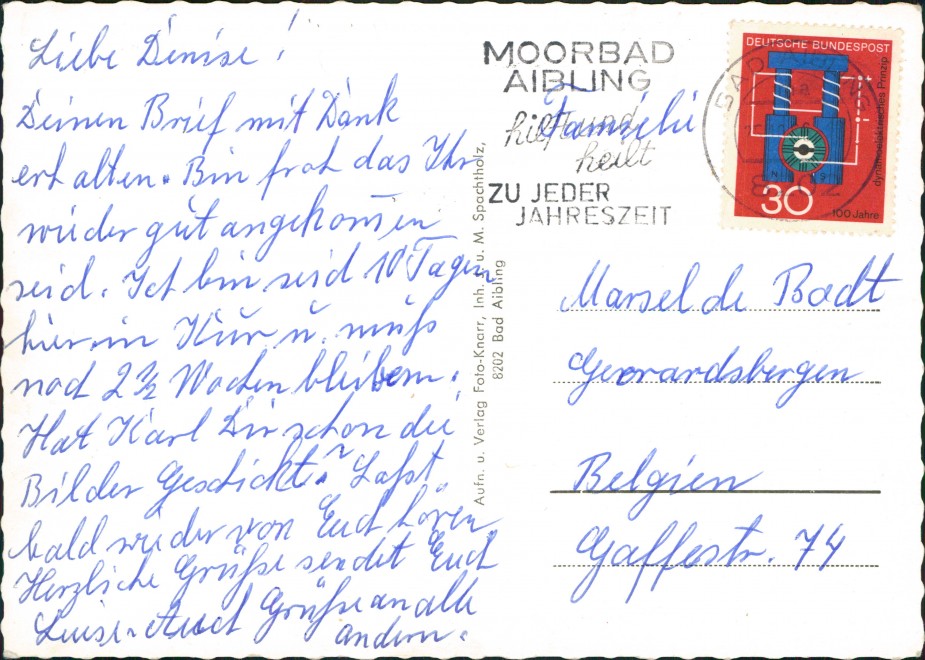 Liebe Denise!
Deinen Brief mit Dank
erhalten. Bin froh das Ihr
wieder gut angekommen
seid. Ich bin seid 10 Tagen
hier in Kur u. muß
noch 2 ½ Wochen bleiben.
Hat Karl Dir schon die
Bilder Geschickt? Laßt
bald wieder von Euch hören
Herzliche Grüße sendet Euch
Luise. Auch Grüße an alle
andern.
Aufn. u. Verlag Foto-Knarr, Inh. J. u. M. Spachtholz,
8202 Bad Aibling
MOORBAD
AIBLING
hilft und
heilt
ZU JEDER
JAHRESZEIT
DEUTSCHE BUNDESPOST
dynamoelektrisches Prinzip
N S
30
100 Jahre
Familie
Marsel de Badt
Gerardsbergen
Belgien
Gaffestr. 74